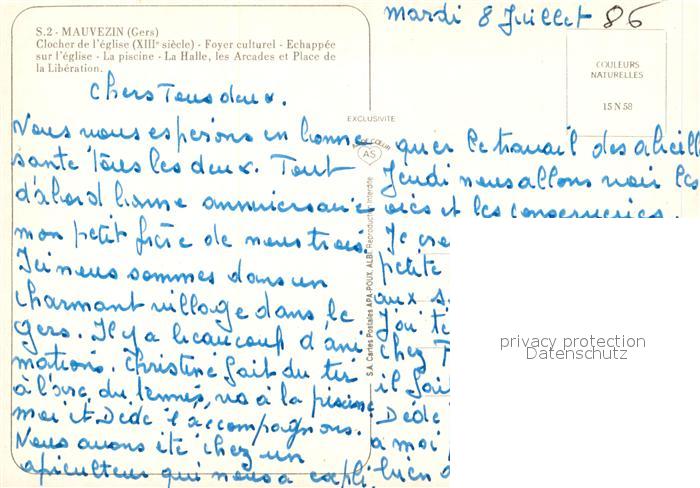 S.2 - MAUVEZIN (Gers)
Clocher de l'église (XIIIe siècle) - Foyer culturel - Echappée
sur l'église - La piscine - La Halle, les Arcades et Place de
la Libération.
mardi 8 Juillet 86
COULEURS
NATURELLES
15 N 58
EXCLUSIVITE
AS
S.A. Cartes Postales APA-POUX, ALBI Reproduction Interdite
Chers Tous deux.
Nous vous esperons en bonne
santé Tous les deux. Tout
d'abord bonne anniversaire
mon petit frère de nous trois.
Ici nous sommes dans un
charmant village dans le
gers. Il y a beaucoup d'ani
mations. Christine fait du tir
à l'arc, du tennis, va à la piscine
moi et Dédé l'accompagnons.
Nous avons été chez un
apiculteur qui nous a expli
quer le travail des abeill
Jeudi nous allons voir les
oies et les conserveries.
Je
petite
aux s
J'ai té
chez
il fait
Dédé
a moi
bien
privacy protection
Datenschutz